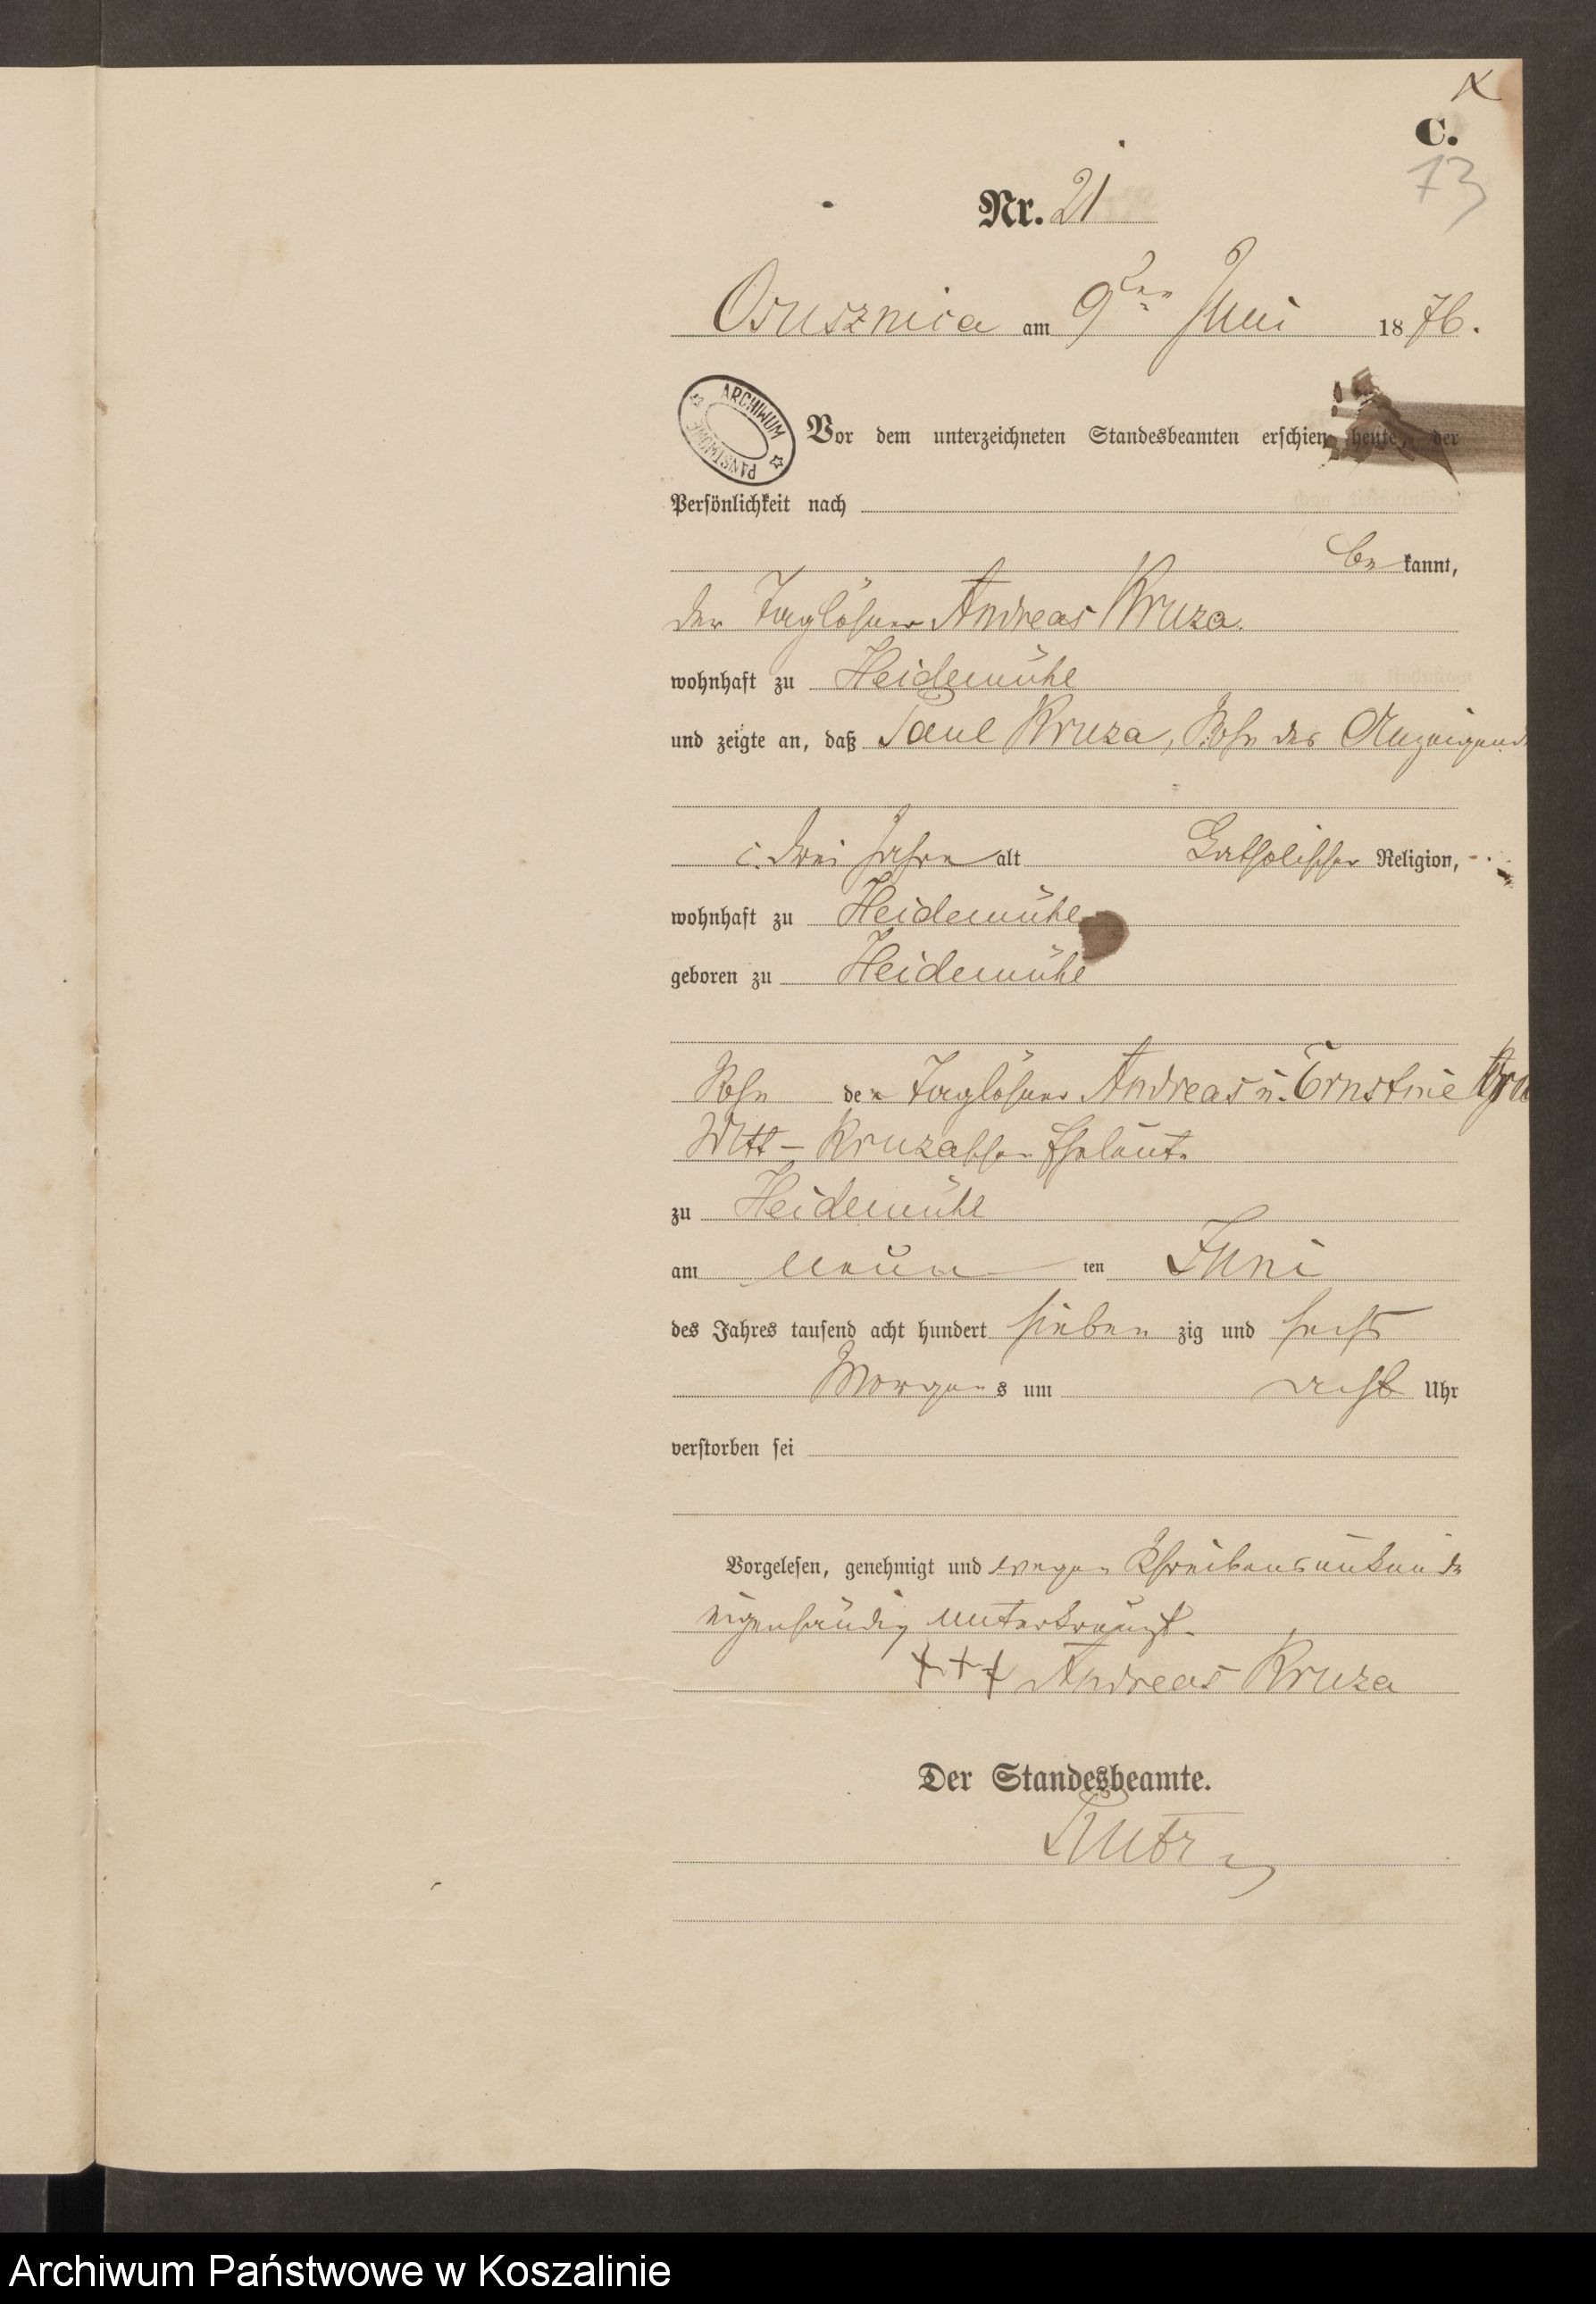 C.
73
Nr. 21
Osusznica am 9ten Juni 1876.
ARCHIWUM PAŃSTWOWE
Vor dem unterzeichneten Standesbeamten erschien heute, der
Persönlichkeit nach
be kannt,
der Taglöhner Andreas Kruza.
wohnhaft zu Heidemühl
und zeigte an, daß Paul Kruza, Sohn des Anzeigend
drei Jahre alt Catholischer Religion,
wohnhaft zu Heidemühl
geboren zu Heidemühl
Sohn der Taglöhner Andreas u. Ernstine
Witt - Kruzaschen Eheleute
zu Heidemühl
am neun ten Juni
des Jahres tausend acht hundert sieben zig und sechs
Morgens um acht Uhr
verstorben sei
Vorgelesen, genehmigt und wegen Schreibensunkunde
eigenhändig unterkreuzt.
+++ Andreas Kruza
Der Standesbeamte.
Archiwum Państwowe w Koszalinie